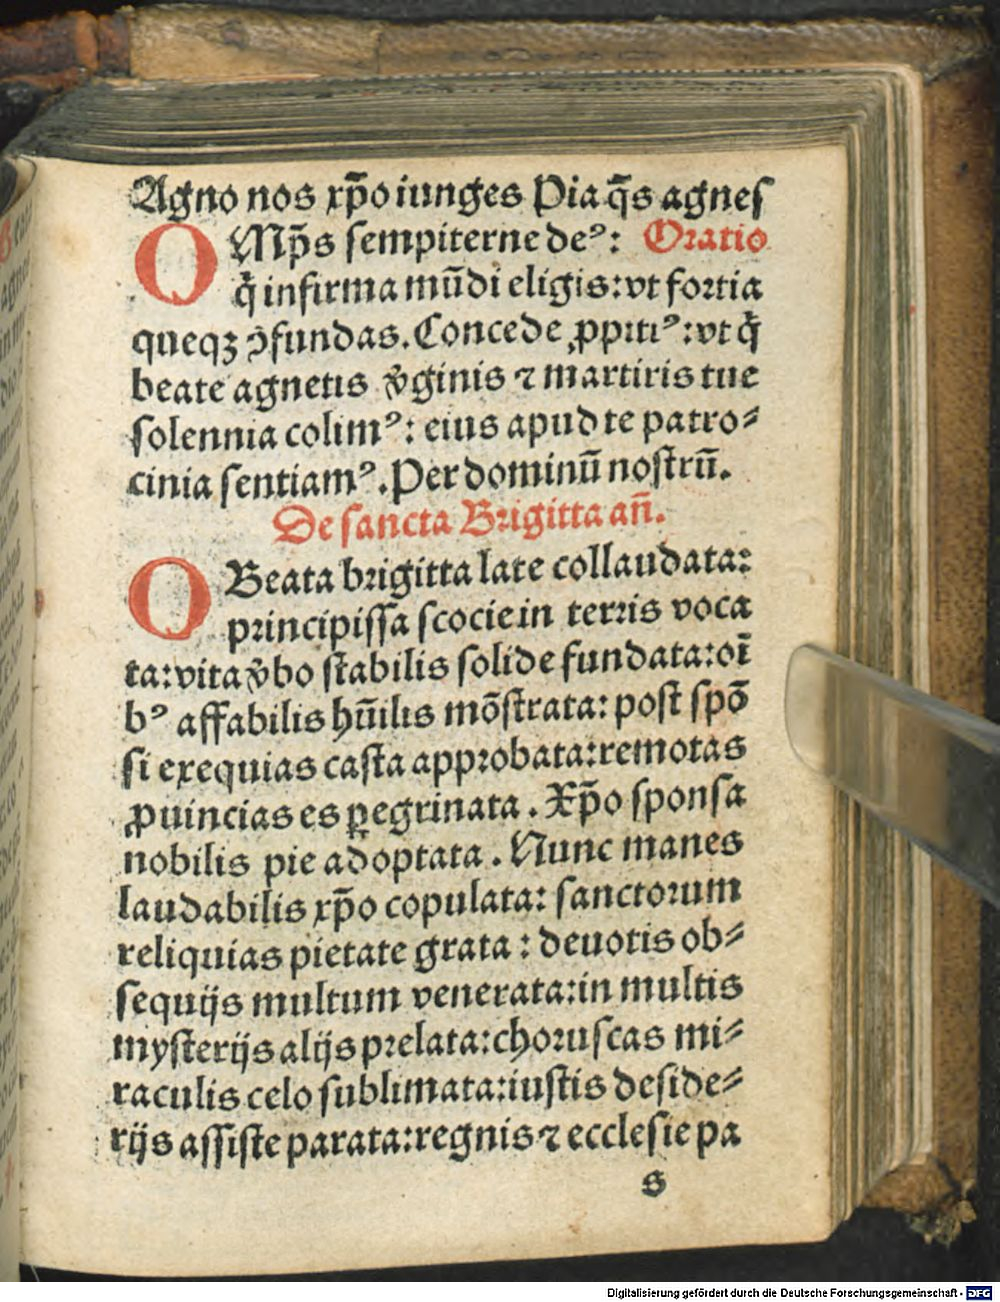 Agno nos xp̄o iunges Pia q̄s agnes
OMp̄s sempiterne deꝰ: Oratio
q̇ infirma mūdi eligis: vt fortia
queqꝫ ꝯfundas. Concede ꝓpitiꝰ: vt q̇
beate agnetis v̉ginis ⁊ martiris tue
solennia colimꝰ: eius apud te patro⸗
cinia sentiamꝰ. Per dominū nostrū.
De sancta Brigitta añ.
O Beata brigitta late collaudata:
principissa scocie in terris voca
ta: vita v̉bo stabilis solide fundata: oī
bꝰ affabilis hūilis mōstrata: post spō
si exequias casta approbata: remotas
ꝓuincias es ꝑegrinata. Xp̄o sponsa
nobilis pie adoptata. Nunc manes
laudabilis xp̄o copulata: sanctorum
reliquias pietate grata: deuotis ob⸗
sequijs multum venerata: in multis
mysterijs alijs prelata: choruscas mi⸗
raculis celo sublimata: iustis deside⸗
rijs assiste parata: regnis ⁊ ecclesie pa
s
Digitalisierung gefördert durch die Deutsche Forschungsgemeinschaft - DFG